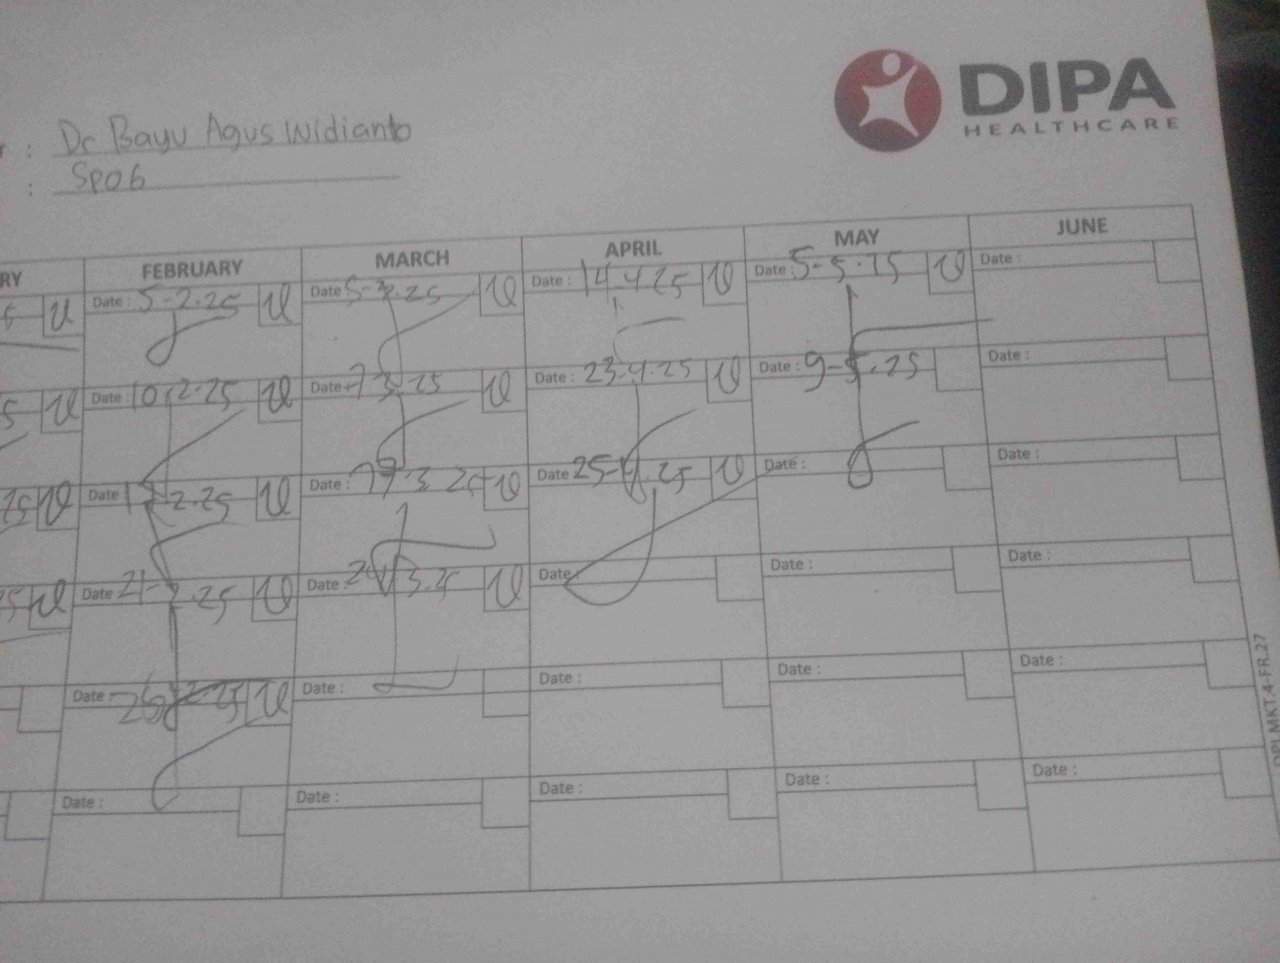 DIPA
HEALTHCARE
: Dr Bayu Agus Widianto
: SPOG
RY FEBRUARY MARCH APRIL MAY JUNE
Date : 5-2.25 Date 5-3.25 Date : 14.4.25 Date : 5-5.25 Date :
Date : 10.2.25 Date 7.3.25 Date : 23.4.25 Date : 9-5.25 Date :
Date 17.2.25 Date : 3.25 Date 25-4.25 Date : Date :
Date 21-2.25 Date : 24.3.25 Date : Date : Date :
Date : 26.2.25 Date : Date : Date : Date :
Date : Date : Date : Date : Date :
MKT.4-FR.27